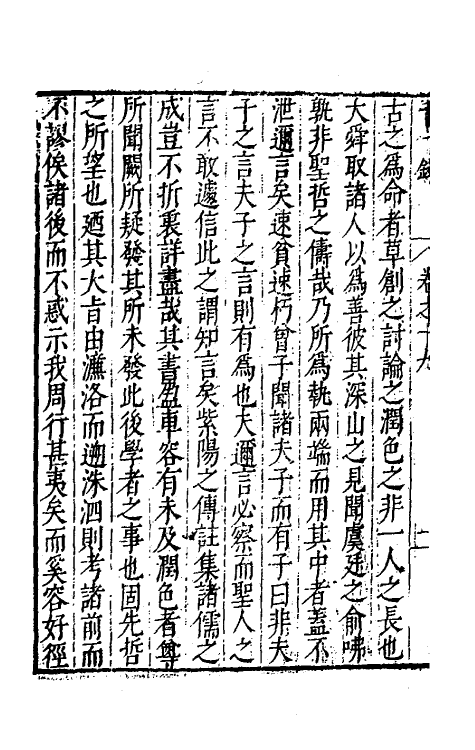 古之爲命者草創之討論之潤色之非一人之長也
大舜取諸人以爲善彼其深山之見聞虞廷之俞咈
孰非聖哲之儔哉乃所爲執兩端而用其中者蓋不
泄邇言矣速貧速朽曾子聞諸夫子而有子曰非夫
子之言夫子之言則有爲也夫邇言必察而聖人之
言不敢遽信此之謂知言矣紫陽之傳註集諸儒之
成豈不折衷詳盡哉其書盈車容有未及潤色者尊
所聞闕所疑發其所未發此後學者之事也固先哲
之所望也廼其大旨由濂洛而遡洙泗則考諸前而
不謬俟諸後而不惑示我周行甚夷矣而奚容好徑